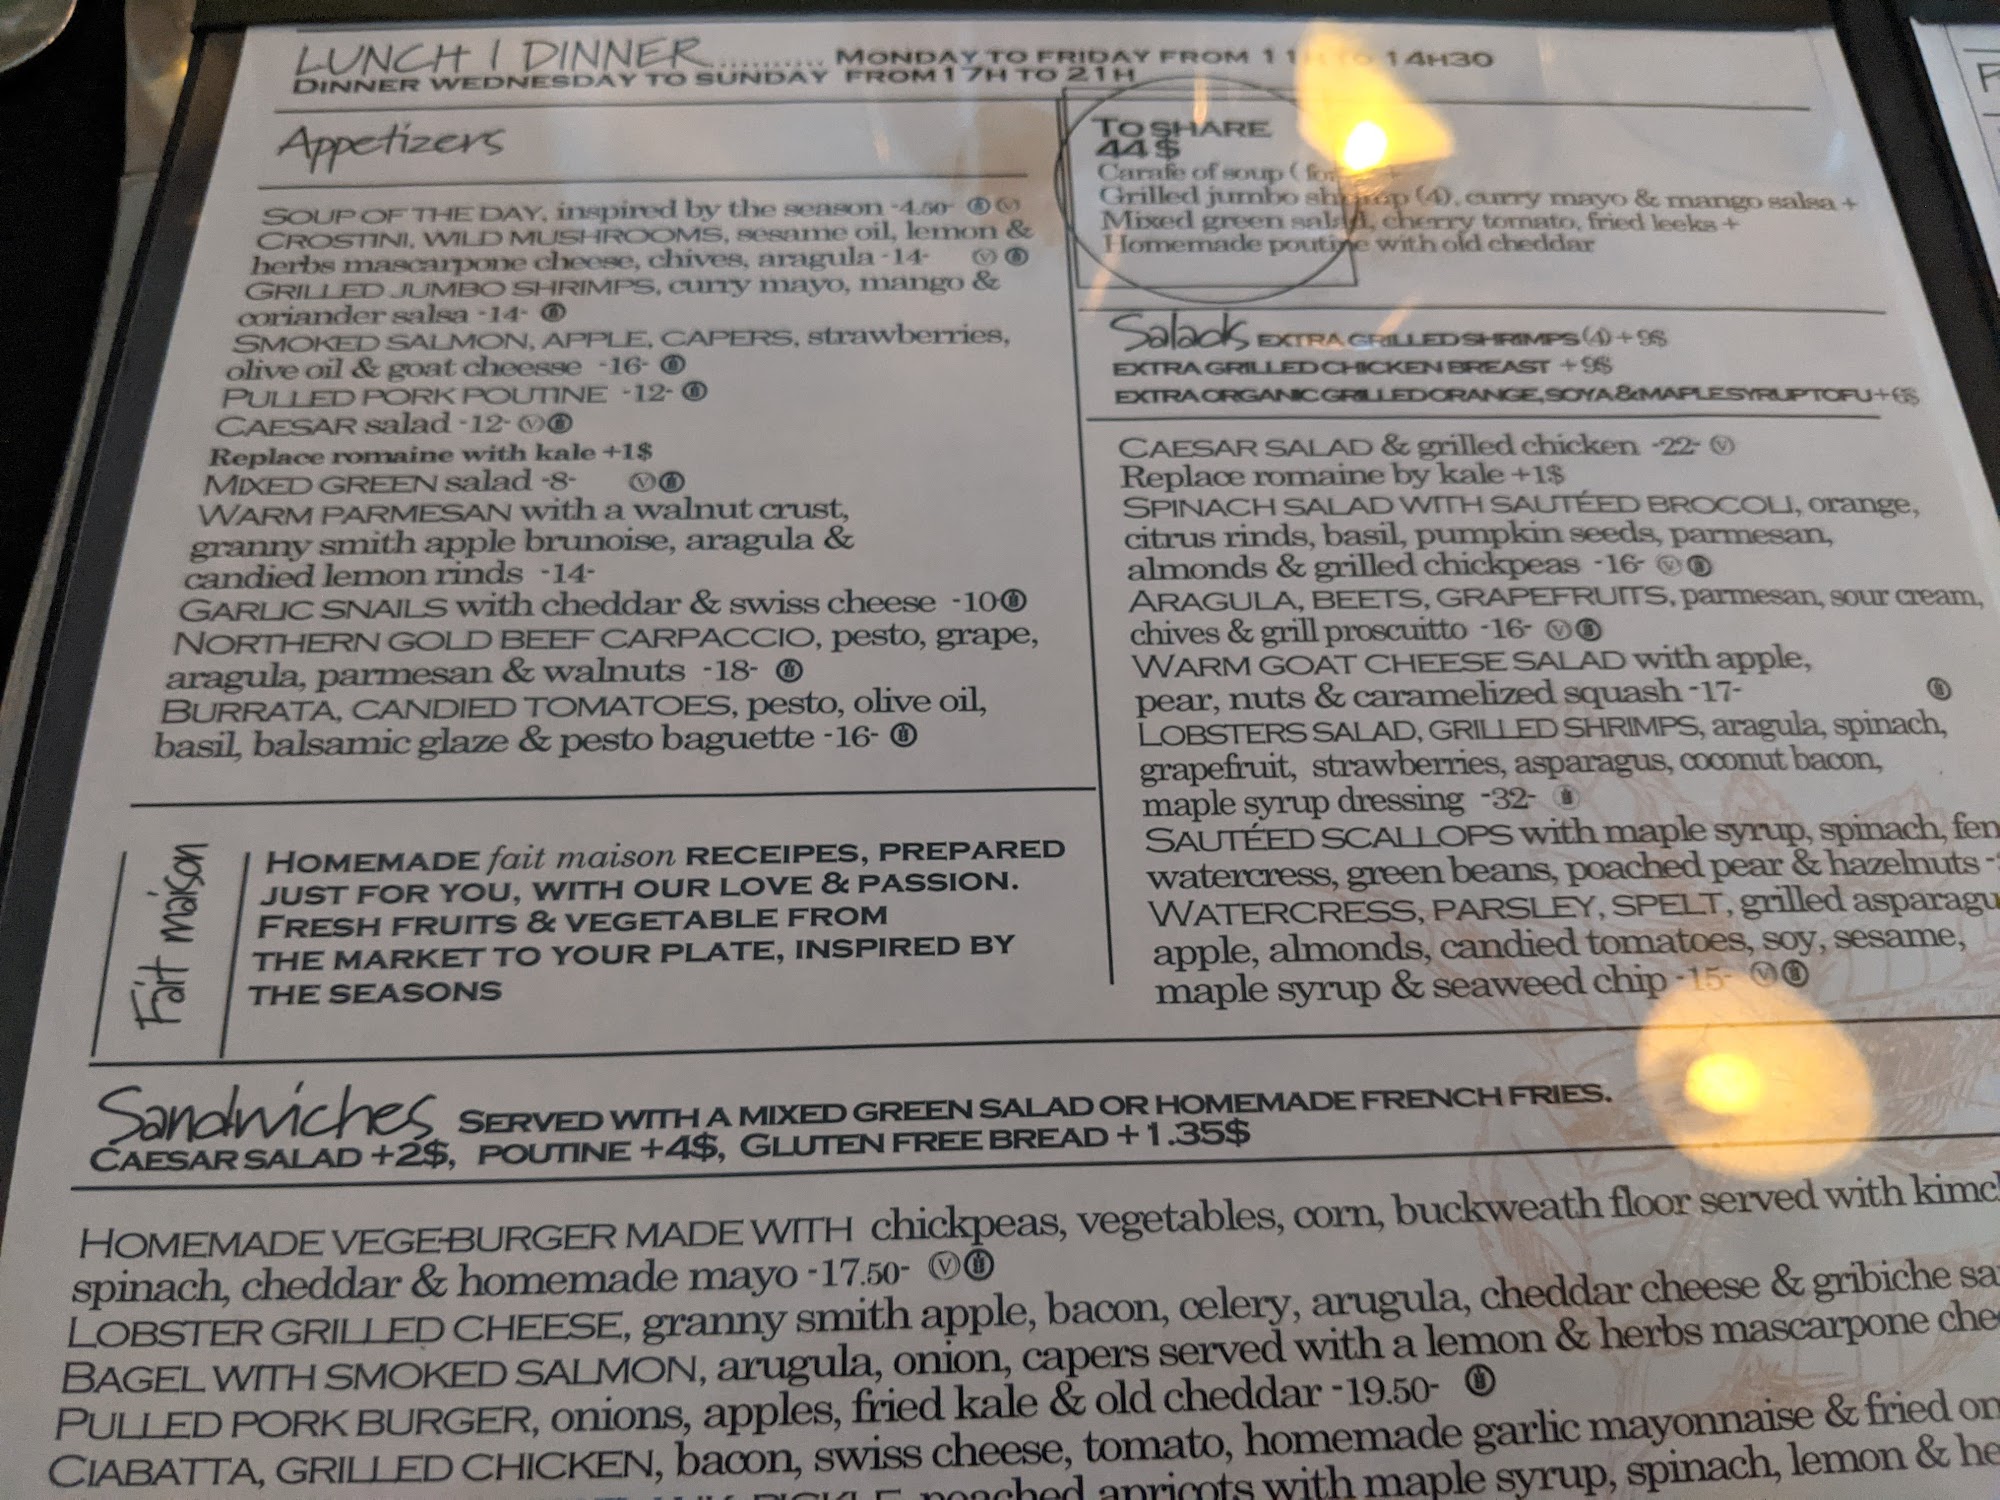 LUNCH | DINNER........... MONDAY TO FRIDAY FROM 11H TO 14H30
DINNER WEDNESDAY TO SUNDAY FROM 17H TO 21H
Appetizers
SOUP OF THE DAY, inspired by the season -4.50- V
CROSTINI, WILD MUSHROOMS, sesame oil, lemon &
herbs mascarpone cheese, chives, aragula -14- V
GRILLED JUMBO SHRIMPS, curry mayo, mango &
coriander salsa -14-
SMOKED SALMON, APPLE, CAPERS, strawberries,
olive oil & goat cheesse -16-
PULLED PORK POUTINE -12-
CAESAR salad -12- V
Replace romaine with kale +1$
MIXED GREEN salad -8- V
WARM PARMESAN with a walnut crust,
granny smith apple brunoise, aragula &
candied lemon rinds -14-
GARLIC SNAILS with cheddar & swiss cheese -10
NORTHERN GOLD BEEF CARPACCIO, pesto, grape,
aragula, parmesan & walnuts -18-
BURRATA, CANDIED TOMATOES, pesto, olive oil,
basil, balsamic glaze & pesto baguette -16-
Fait maison
HOMEMADE fait maison RECEIPES, PREPARED
JUST FOR YOU, WITH OUR LOVE & PASSION.
FRESH FRUITS & VEGETABLE FROM
THE MARKET TO YOUR PLATE, INSPIRED BY
THE SEASONS
TO SHARE
44$
Carafe of soup ( +
Grilled jumbo shrimp (4), curry mayo & mango salsa +
Mixed green salad, cherry tomato, fried leeks +
Homemade poutine with old cheddar
Salads EXTRA GRILLED SHRIMPS (4) + 9$
EXTRA GRILLED CHICKEN BREAST + 9$
EXTRA ORGANIC GRILLED ORANGE, SOYA & MAPLE SYRUP TOFU + 6$
CAESAR SALAD & grilled chicken -22- V
Replace romaine by kale +1$
SPINACH SALAD WITH SAUTÉED BROCOLI, orange,
citrus rinds, basil, pumpkin seeds, parmesan,
almonds & grilled chickpeas -16- V
ARAGULA, BEETS, GRAPEFRUITS, parmesan, sour cream,
chives & grill proscuitto -16- V
WARM GOAT CHEESE SALAD with apple,
pear, nuts & caramelized squash -17-
LOBSTERS SALAD, GRILLED SHRIMPS, aragula, spinach,
grapefruit, strawberries, asparagus, coconut bacon,
maple syrup dressing -32-
SAUTÉED SCALLOPS with maple syrup, spinach,
watercress, green beans, poached pear & hazelnuts
WATERCRESS, PARSLEY, SPELT, grilled
apple, almonds, candied tomatoes, soy, sesame,
maple syrup & seaweed chip -15- V
Sandwiches SERVED WITH A MIXED GREEN SALAD OR HOMEMADE FRENCH FRIES.
CAESAR SALAD +2$, POUTINE +4$, GLUTEN FREE BREAD + 1.35$
HOMEMADE VEGE-BURGER MADE WITH chickpeas, vegetables, corn, buckweath floor served with
spinach, cheddar & homemade mayo -17.50- V
LOBSTER GRILLED CHEESE, granny smith apple, bacon, celery, arugula, cheddar cheese & gribiche
BAGEL WITH SMOKED SALMON, arugula, onion, capers served with a lemon & herbs mascarpone
PULLED PORK BURGER, onions, apples, fried kale & old cheddar -19.50-
CIABATTA, GRILLED CHICKEN, bacon, swiss cheese, tomato, homemade garlic mayonnaise & fried
poached apricots with maple syrup, spinach, lemon &